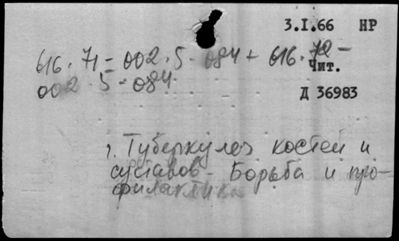 3.I.66 НР
616.71-002.5-084+616.72-
Чит.
002.5-084.
Д 36983
1. Туберкулез костей и
суставов - Борьба и про-
филактика